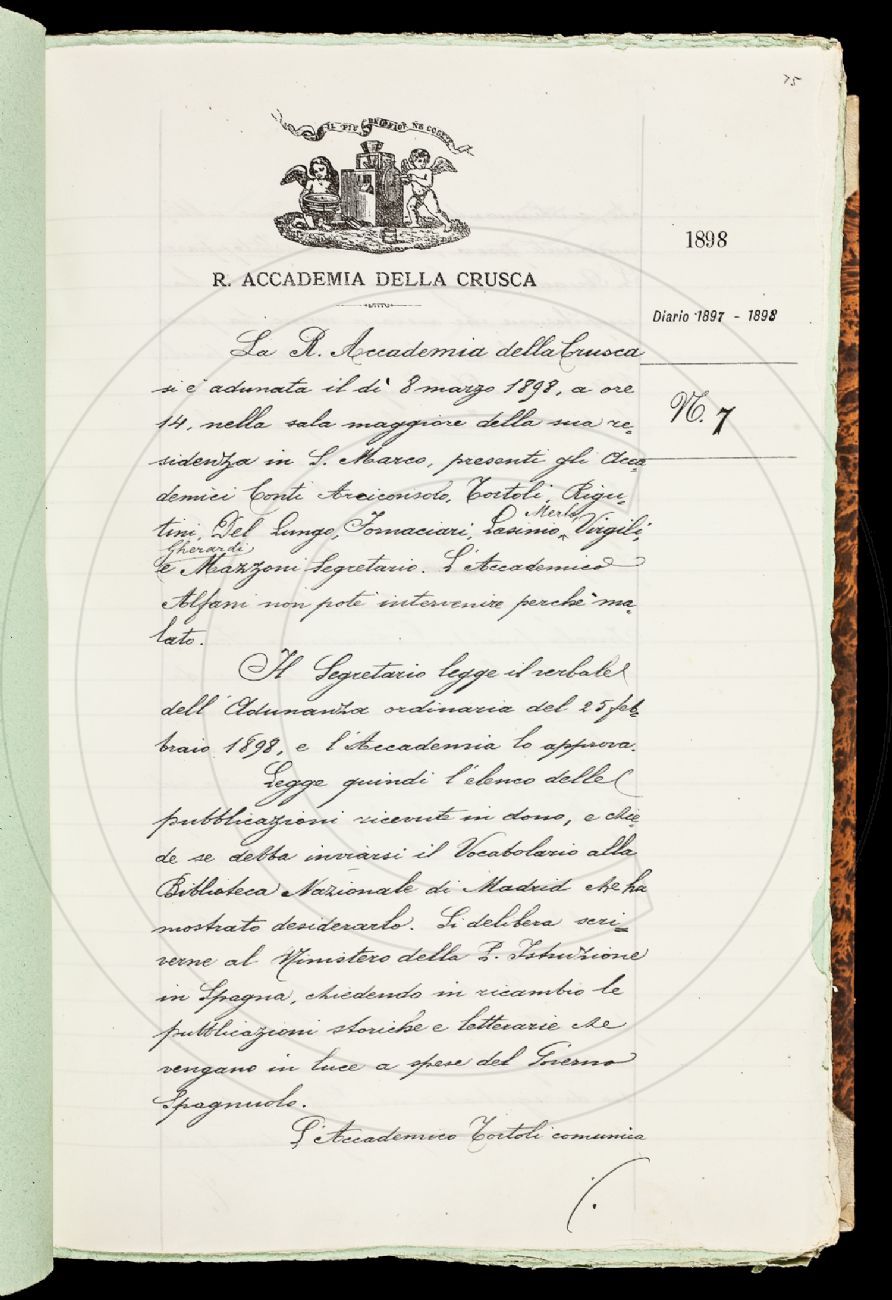 75
IL PIÙ BEL FIOR NE COGLIE
1898
R. ACCADEMIA DELLA CRUSCA
Diario 1897 - 1898
N. 7
La R. Accademia della Crusca
si è adunata il dì 8 marzo 1898, a ore
14, nella sala maggiore della sua re=
sidenza in S. Marco, presenti gli Acca
demici Conti Arciconsolo, Tortoli, Rigu-
tini, Del Lungo, Fornaciari, Lesimo, Merlo, Virgili,
Gherardi
e Mazzoni Segretario. L'Accademico
Alfani non potè intervenire perchè ma-
lato.
Il Segretario legge il verbale
dell'Adunanza ordinaria del 25 feb-
braio 1898, e l'Accademia lo approva.
Legge quindi l'elenco delle
pubblicazioni ricevute in dono, e chie-
de se debba inviarsi il Vocabolario alla
Biblioteca Nazionale di Madrid che ha
mostrato desiderarlo. Si delibera scri=
verne al Ministero della P. Istruzione
in Spagna, chiedendo in ricambio le
pubblicazioni storiche e letterarie che
vengano in luce a spese del Governo
Spagnuolo.
L'Accademico Tortoli comunica